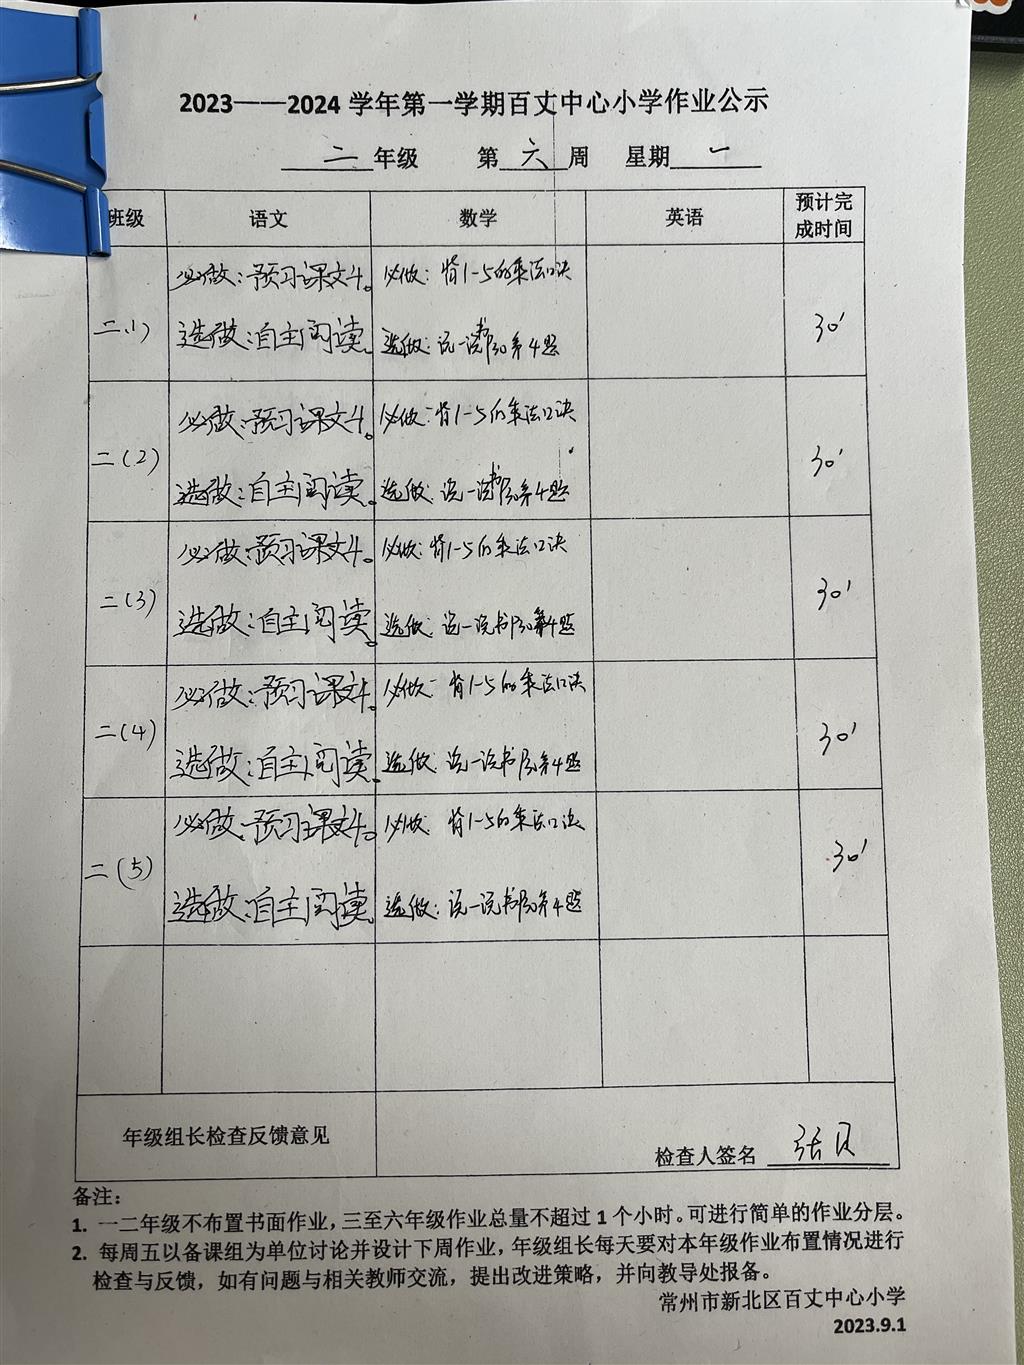 2023——2024 学年第一学期百丈中心小学作业公示
二 年级 第 六 周 星期 一
班级 语文 数学 英语 预计完成时间
二(1) 必做：预习课文4。 必做：背1-5的乘法口诀 30'
选做：自主阅读。 选做：说一说书P30第4题
二(2) 必做：预习课文4。 必做：背1-5的乘法口诀 30'
选做：自主阅读。 选做：说一说书P30第4题
二(3) 必做：预习课文4。 必做：背1-5的乘法口诀 30'
选做：自主阅读。 选做：说一说书P30第4题
二(4) 必做：预习课文4。 必做：背1-5的乘法口诀 30'
选做：自主阅读。 选做：说一说书P30第4题
二(5) 必做：预习课文4。 必做：背1-5的乘法口诀 30'
选做：自主阅读。 选做：说一说书P30第4题
年级组长检查反馈意见
检查人签名 张贝
备注：
1. 一二年级不布置书面作业，三至六年级作业总量不超过 1 个小时。可进行简单的作业分层。
2. 每周五以备课组为单位讨论并设计下周作业，年级组长每天要对本年级作业布置情况进行
检查与反馈，如有问题与相关教师交流，提出改进策略，并向教导处报备。
常州市新北区百丈中心小学
2023.9.1